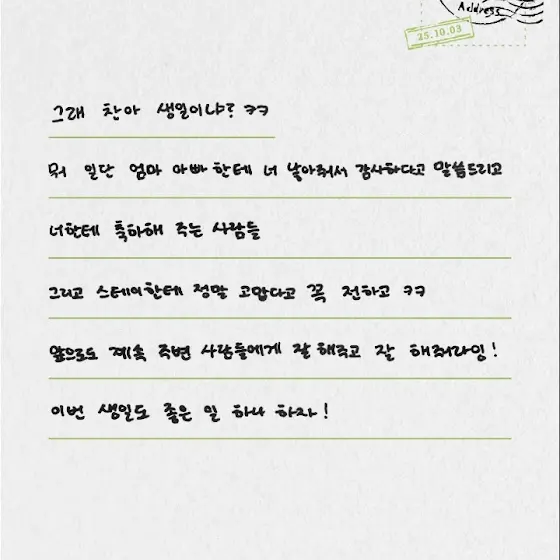 Address
25.10.03
그래 찬아 생일이냐? ㅋㅋ
뭐 일단 엄마 아빠한테 너 낳아줘서 감사하다고 말씀드리고
너한테 축하해 주는 사람들
그리고 스테이한테 정말 고맙다고 꼭 전하고 ㅋㅋ
앞으로도 계속 주변 사람들에게 잘해주고 잘 해줘라잉!
이번 생일도 좋은 일 하나 하자!